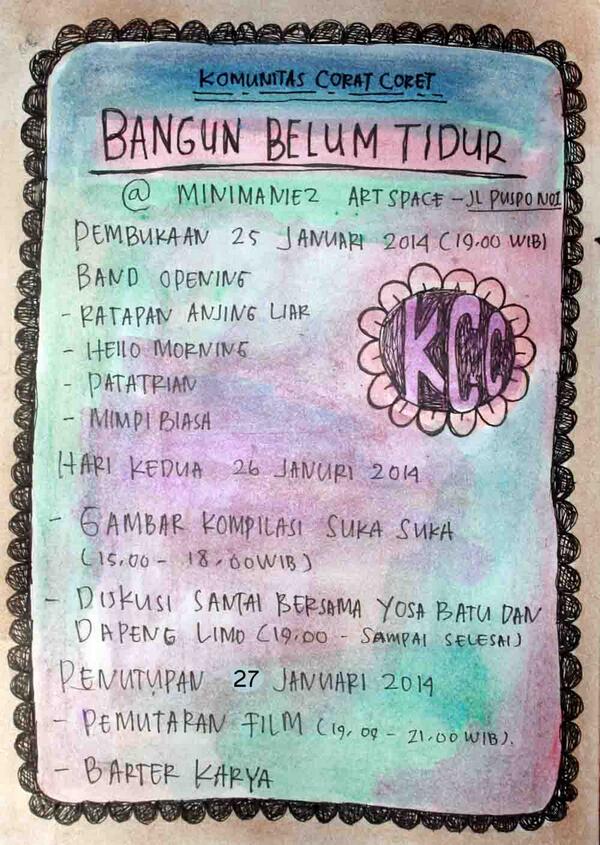 KOMUNITAS CORAT CORET
BANGUN BELUM TIDUR
@ MINIMANIEZ ART SPACE - JL PUSPO NO1
PEMBUKAAN 25 JANUARI 2014 (19.00 WIB)
BAND OPENING
- RATAPAN ANJING LIAR
- HELLO MORNING
- PATATRIAN
- MIMPI BIASA
KCC
HARI KEDUA 26 JANURI 2014
- GAMBAR KOMPILASI SUKA SUKA
(15.00 - 18.00 WIB)
- DISKUSI SANTAI BERSAMA YOSA BATU DAN
DAPENG LIMO (19.00 - SAMPAI SELESAI)
PENUTUPAN 27 JANUARI 2014
- PEMUTARAN FILM (19.00 - 21.00 WIB).
- BARTER KARYA